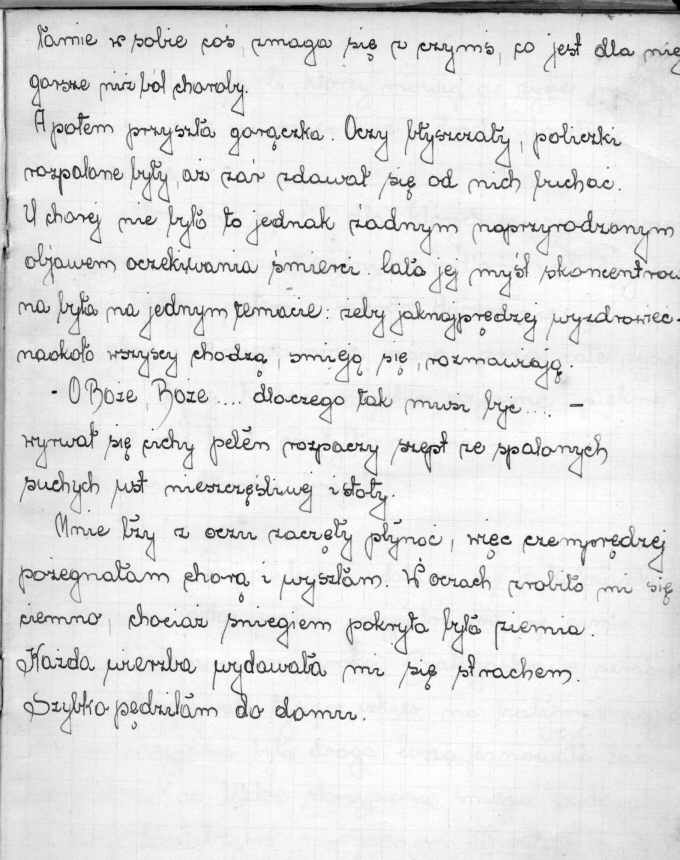 łamie w sobie coś, zmaga się z czymś, co jest dla nie
gorsze niż ból choroby.
A potem przyszła gorączka. Oczy błyszczały, policzki
rozpalone były, aż żar zdawał się od nich buchać.
U chorej nie było to jednak żadnym naprzyrodzonym
objawem oczekiwania śmierci. Cała jej myśl skoncentrow
na była na jednym temacie: żeby jaknajprędzej wyzdrowieć.
naokoło wszyscy chodzą, śmieją się, rozmawiają.
- O Boże, Boże .... dlaczego tak musi być .... -
wyrwał się cichy pełen rozpaczy szept ze spalonych
suchych ust nieszczęśliwej istoty.
Mnie łzy z oczu zaczęły płynąć, więc czemprędzej
pożegnałam chorą i wyszłam. W oczach zrobiło mi się
ciemno, chociaż śniegiem pokryta była ziemia.
Każda wierzba wydawała mi się strachem.
Szybko pędziłam do domu.